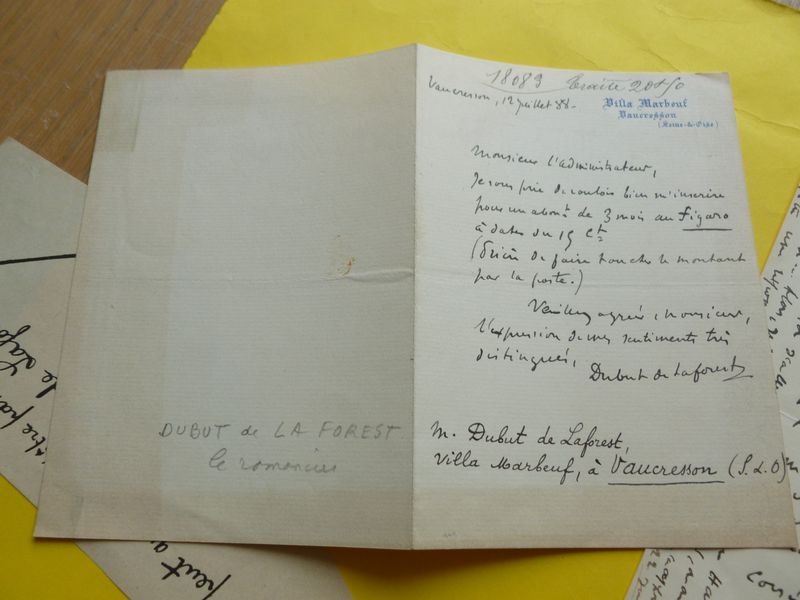 18083 traite 20 f 50
Vaucresson, 12 juillet 88-
Villa Marbeuf
Vaucresson
(Seine-&-Oise)
Monsieur l'administrateur,
Je vous prie de vouloir bien m'inscrire
pour un abont de 3 mois au Figaro
à dater du 15 ct
(Prière de faire toucher le montant
par la poste.)
Veuillez agréer, monsieur,
l'expression de mes sentiments très
distingués,
Dubut de Laforest
M. Dubut de Laforest,
Villa Marbeuf, à Vaucresson (S. & O)
DUBUT de LA FOREST
le romancier